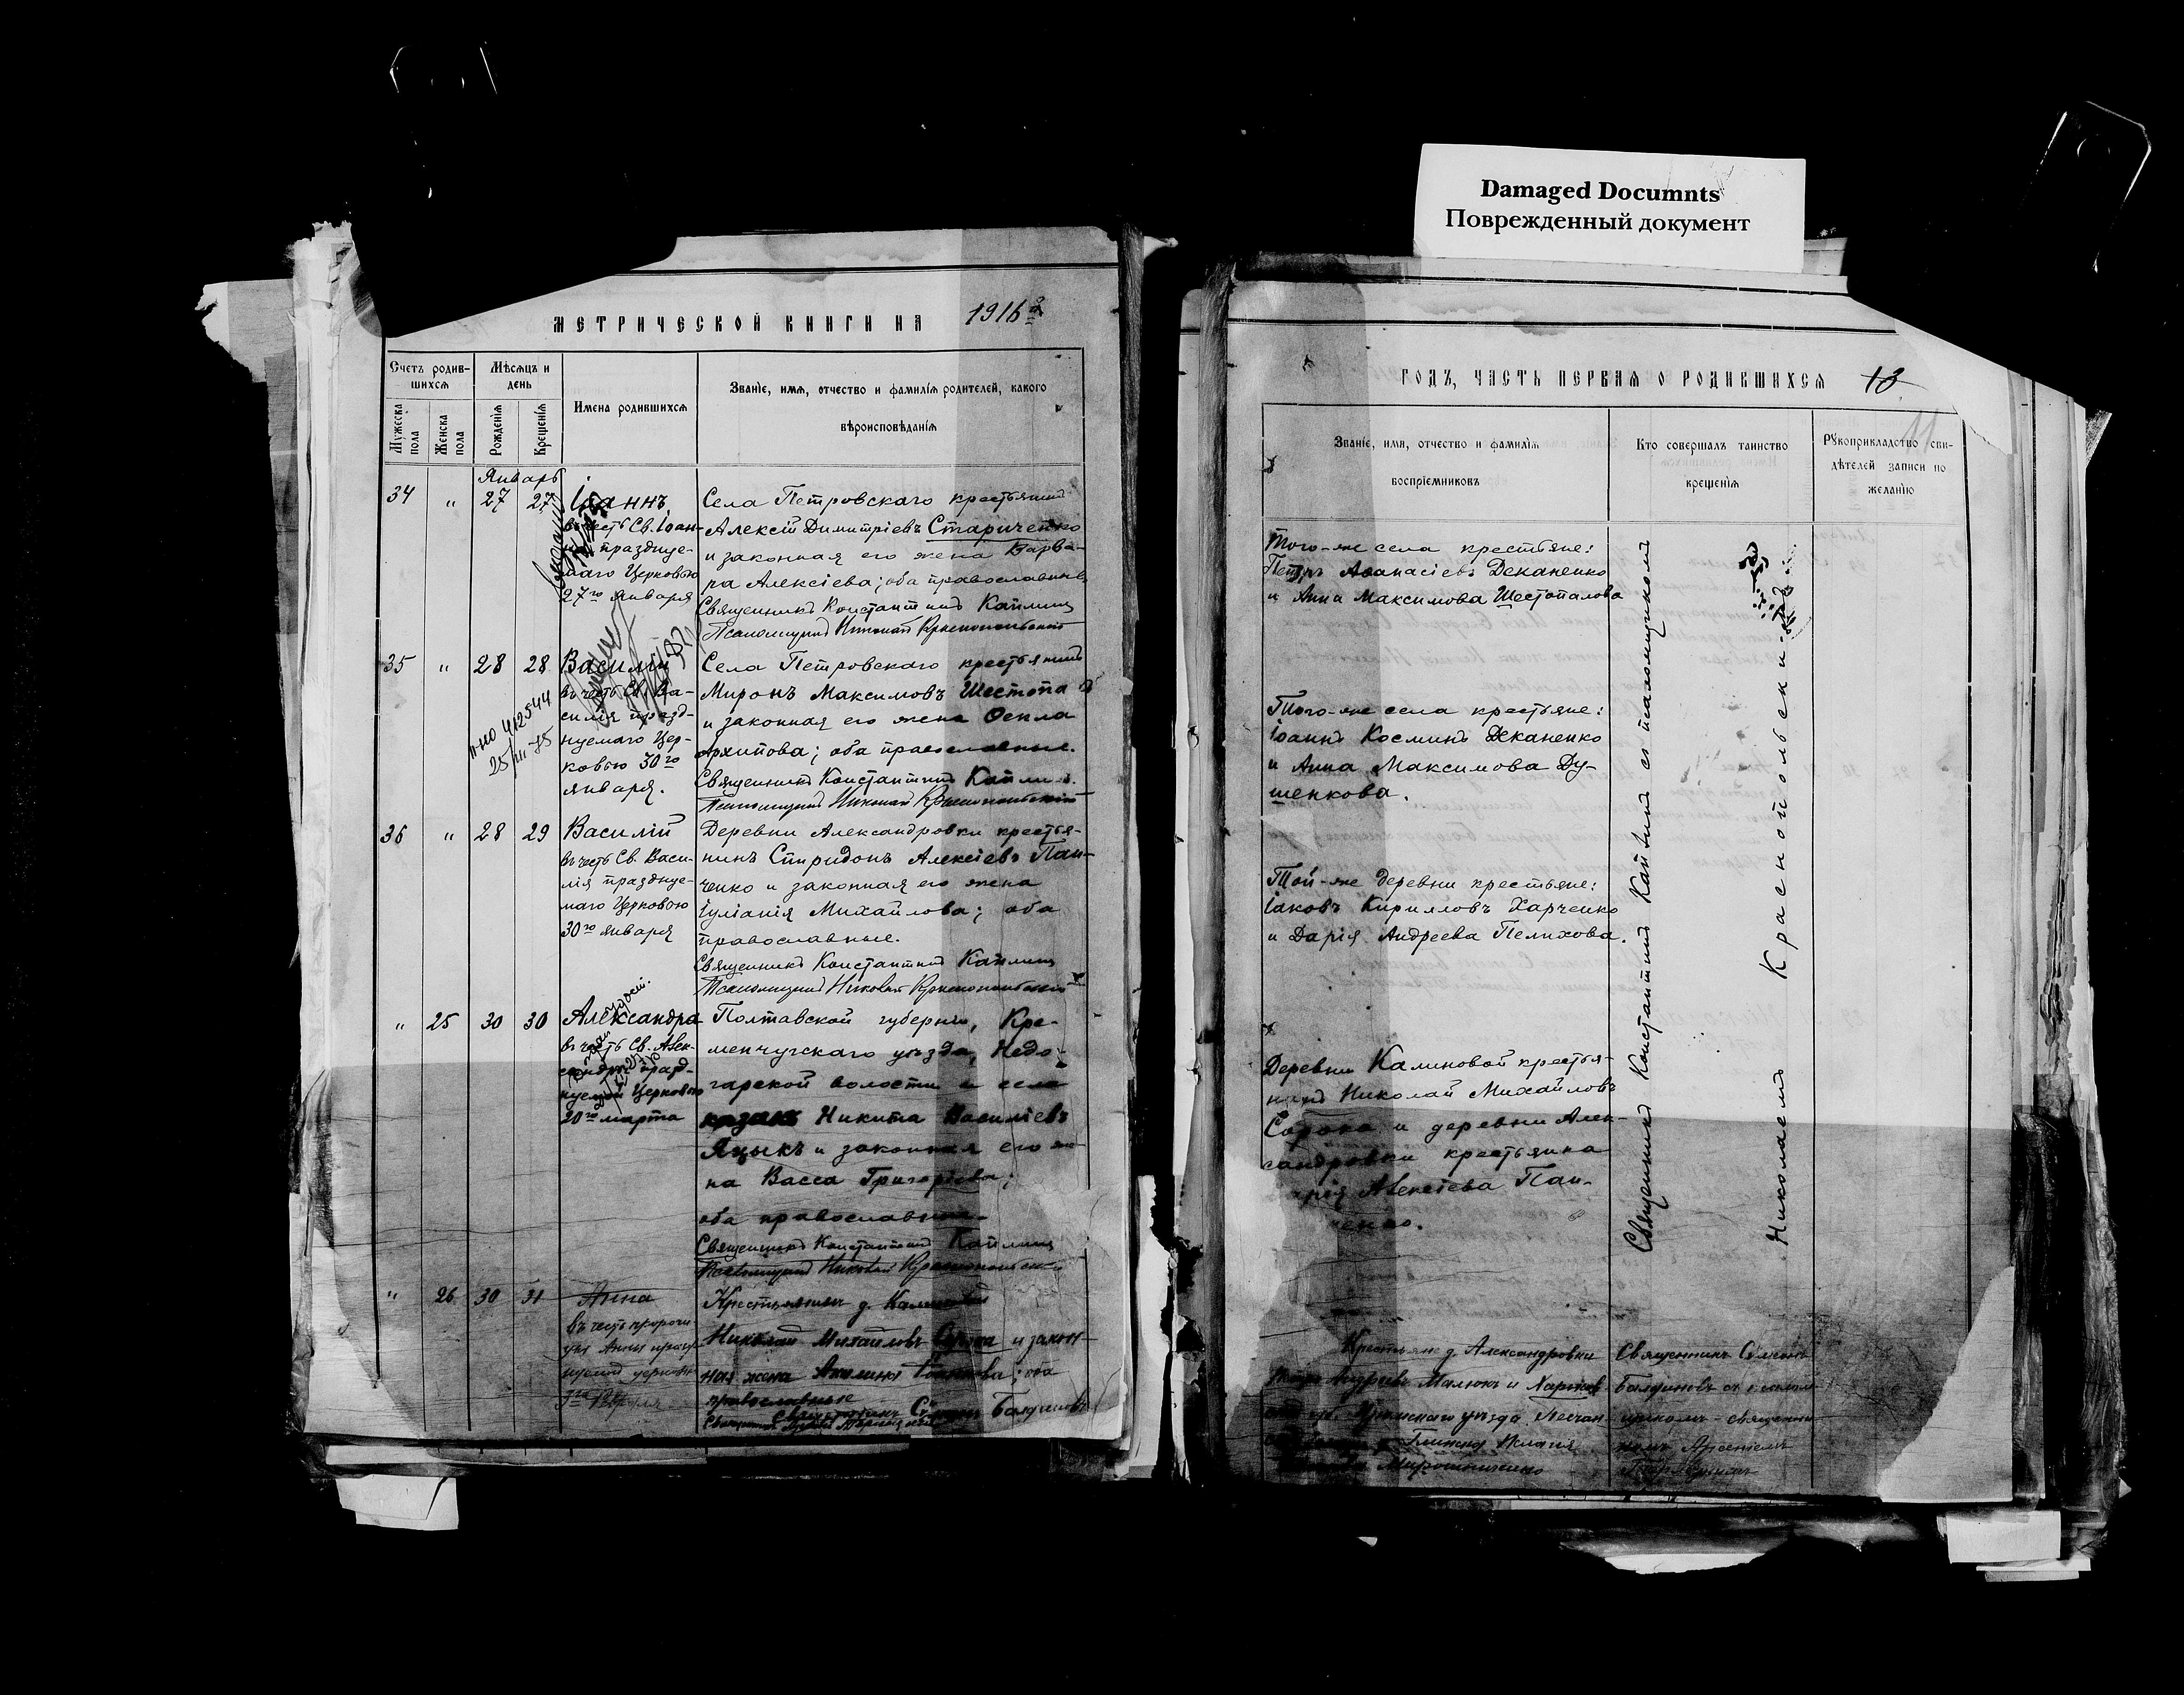 Damaged Documnts
Поврежденный документ
МЕТРИЧЕСКОЙ КНИГИ НА 1916 г
Счетъ родив-
шихся
Мѣсяцъ и
день
Имена родившихся
Званіе, имя, отчество и фамилія родителей, какого
вѣроисповѣданія
Мужеска пола
Женска пола
Рожденія
Крещенія
Январь
34 " 27 27 Іоаннъ
въ честь Св. Іоан-
на праздн​уе-
маго Церковью
27го января
Села Петровскаго крестьянинъ
Алексій Димитріевъ Стариченко
и законная его жена Варва-
ра Алексіева; оба православные
Священникъ Константинъ Каплинъ
Псаломщикъ Николай Краснопольскій
35 " 28 28 Василій
въ честь Св. Ва-
силія празд-
нуемаго Цер-
ковью 30го
января.
412544
25/III-75
Села Петровскаго крестьянинъ
Миронъ Максимовъ Шестопа
и законная его жена Фекла
Архипова; оба православные.
Священникъ Константинъ Каплинъ
Псаломщикъ Николай Краснопольскій
36 " 28 29 Василій
въ честь Св. Васи-
лія праздн​уе-
маго Церковью
30го января
Деревни Александровки крестья-
нинъ Спиридонъ Алексіевъ Пан-
ченко и законная его жена
Іуліанія Михайлова; оба
православные.
Священникъ Константинъ Каплинъ
Псаломщикъ Николай Краснопольскій
" 25 30 30 Александра
въ честь Св. Алек-
сандры празд-
нуемой Церковью
20го марта
Полтавской губерніи, Кре-
менчугскаго уѣзда, Недо-
гарской волости и села
казакъ Никита Василіевъ
Языкъ и законная его же-
на Васса Григоріева;
оба православные.
Священникъ Константинъ Каплинъ
Псаломщикъ Николай Краснопольскій
" 26 30 31 Анна
въ честь пророчи
цы Анны празд
Крестьянинъ д. Калиновой
Николай Михайловъ Сорока и закон-
ная жена Акилина; оба
православные
Священникъ Балдинов
ГОДЪ, ЧАСТЬ ПЕРВАЯ О РОДИВШИХСЯ 13
11
Званіе, имя, отчество и фамилія
воспріемниковъ
Кто совершалъ таинство
крещенія
Рукоприкладство сви-
дѣтелей записи по
желанію
Того-же села крестьяне:
Петръ Аѳанасіевъ Деканенко
и Анна Максимова Шестопалова
Того-же села крестьяне:
Іоаннъ Косминъ Деканенко
и Анна Максимова Ду-
шенкова.
Той-же деревни крестьяне:
Іаковъ Кирилловъ Харченко
и Дарія Андреева Пелихова.
Деревни Калиновой крестья-
нинъ Николай Михайловъ
Сорока и деревни Алек-
сандровки крестьянка
Алексіева Пан-
ченко.
Священникъ Константинъ Каплинъ съ псаломщикомъ
Николаемъ Краснопольскимъ
Крестьяне д. Александровки
Малюкъ и Харьков
уѣзда Песчан-
Мирошниченко
Священникъ Симеонъ
Балдиновъ съ псалом
щикомъ - священни
комъ